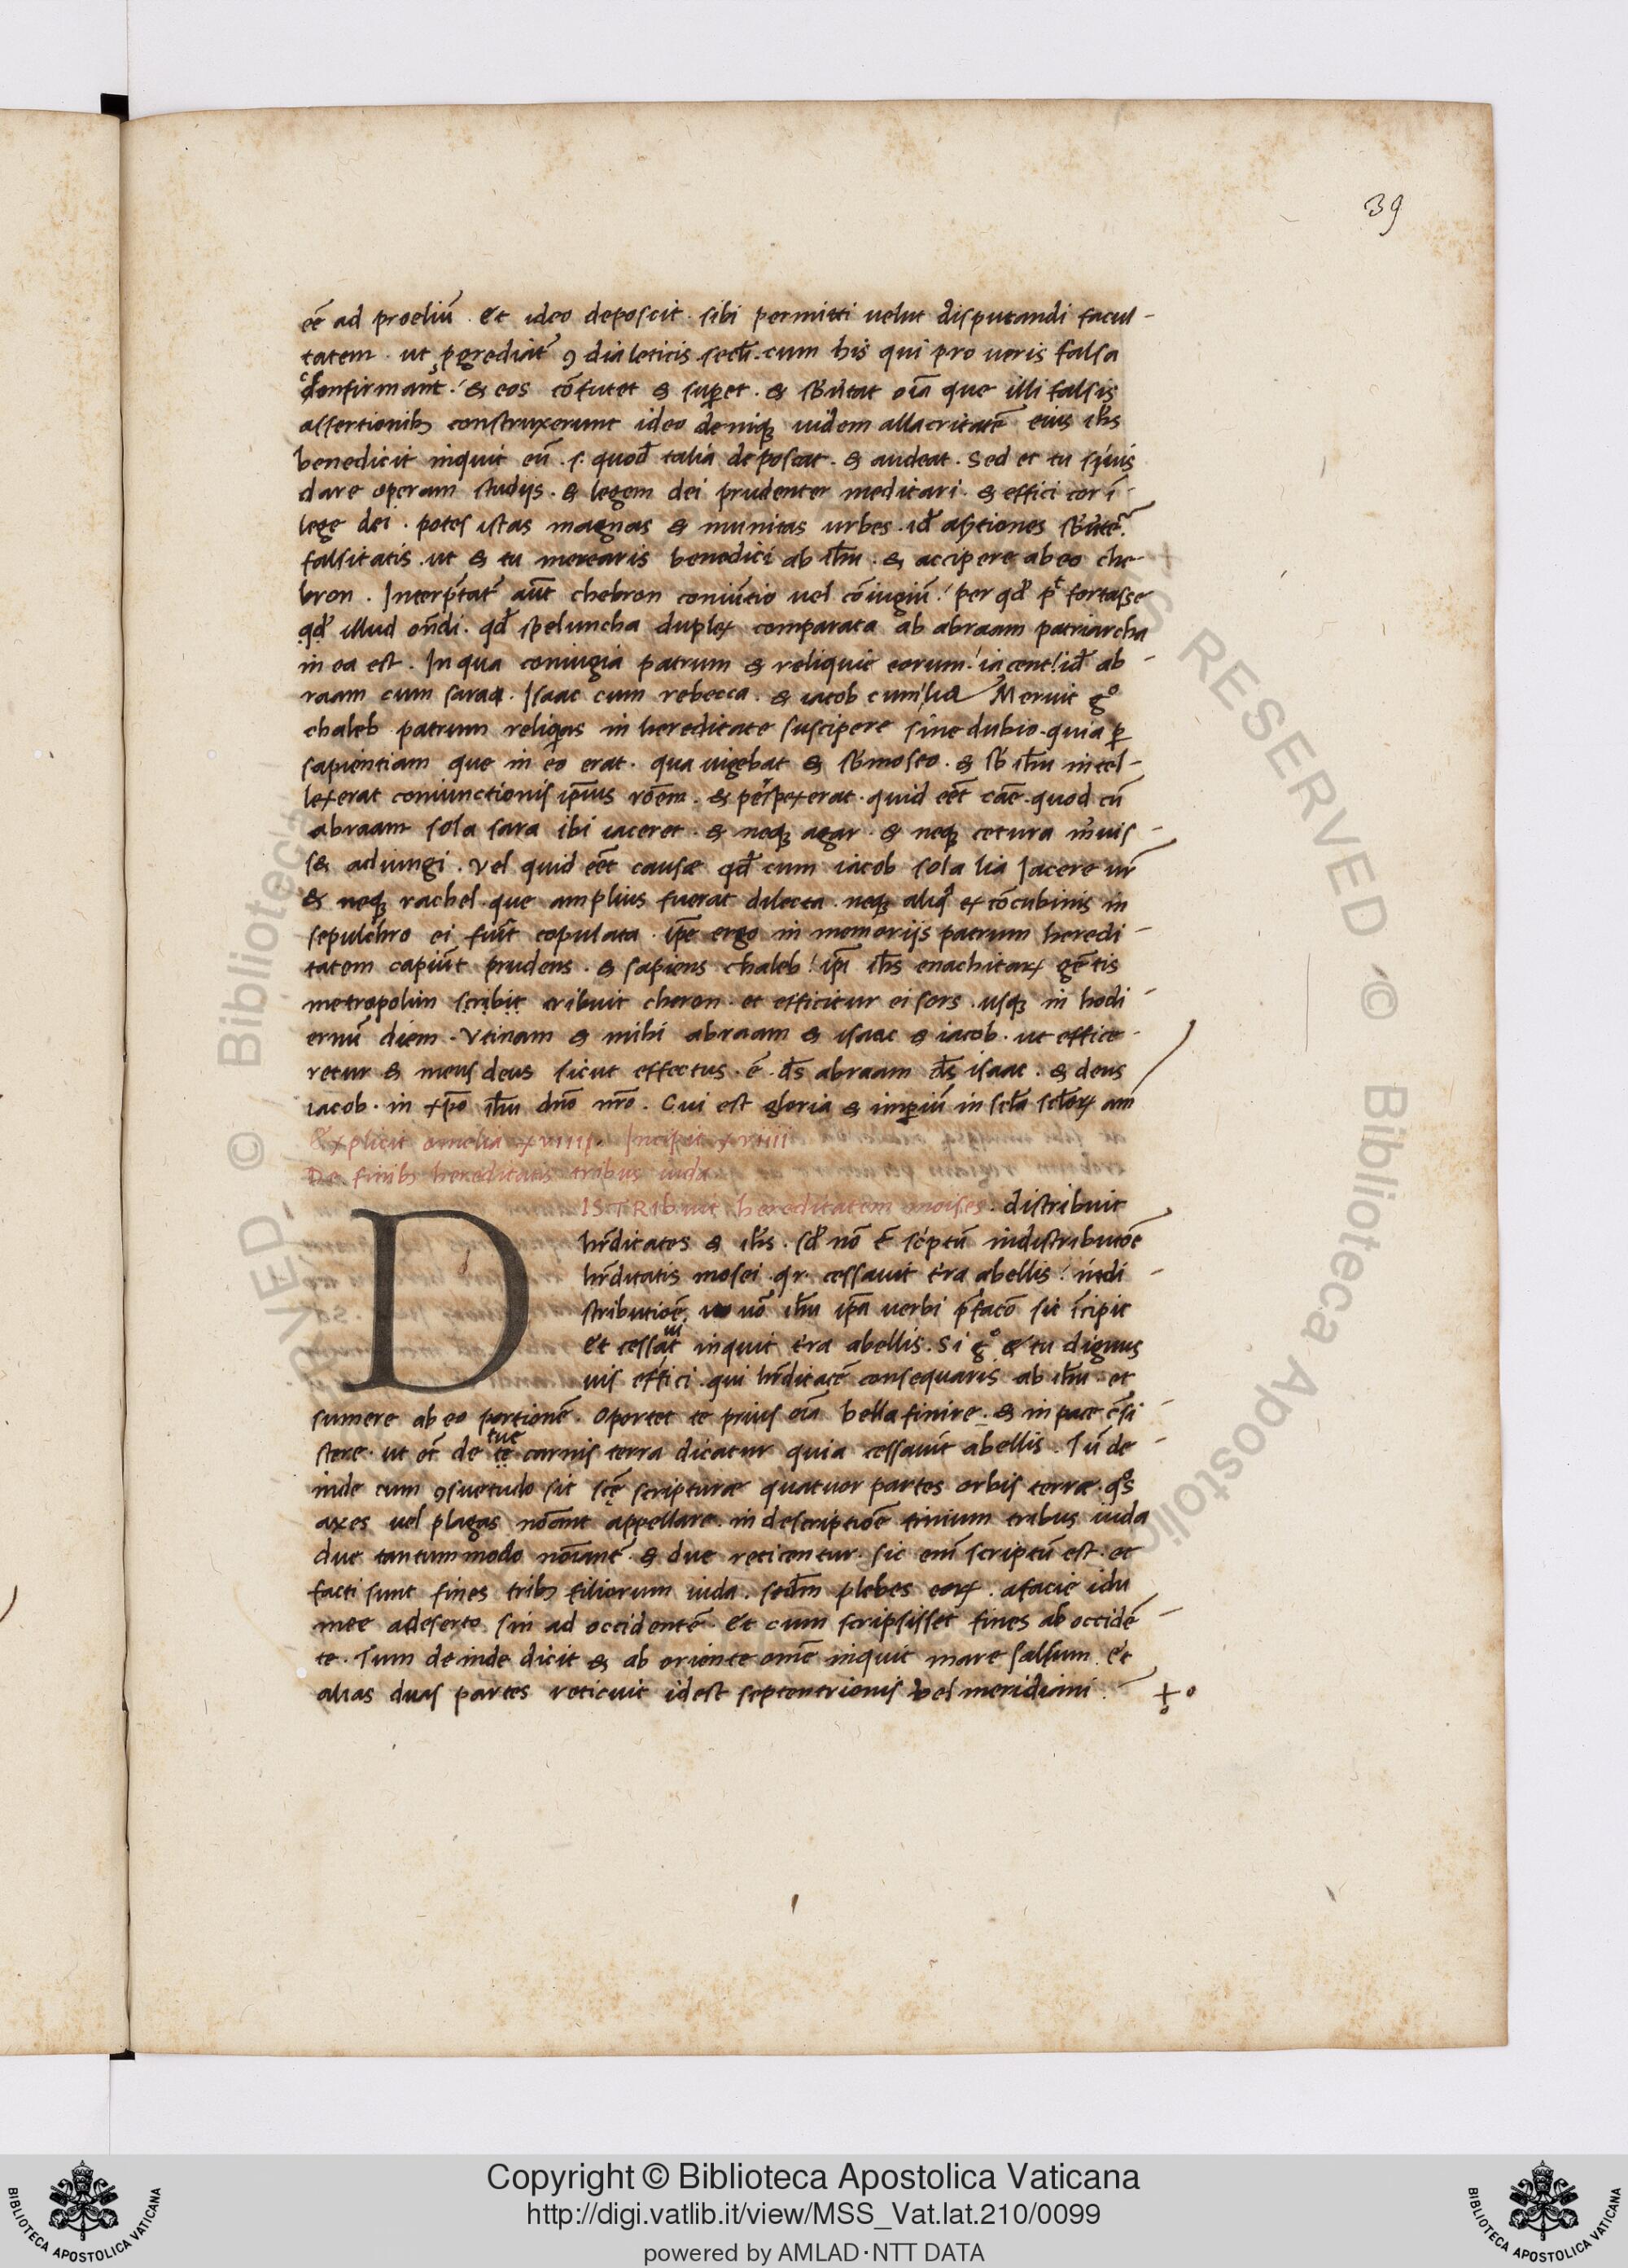 39
eē ad proeliū. Et ideo deposcit. sibi permitti velut disputandi facul-
tatem. ut pgrediat᷑ ꝯ dialeticis. secƚi. cum his qui pro veris falsa
confirmant. & eos cōfutet & suꝑet. & sb̄utat oīa que illi falsis
assertionib; construxerunt ideo deniq; uidem allacritatē eius ih̄s
benedicit inquit eū. s. quod̄ talia deposcat. & audeat. Sed et tu si uis
dare operam studijs. & legem dei prudenter meditari. & effici cor ī
lege dei. potes istas magnas & munitas urbes. id̄ astiones sb̄utē
falsitatis. ut & tu merearis benedici ab ih̄u. & accipere ab eo che-
bron. Interp̄tat᷑ aut̄ chebron coniūctio vel cōiugiū. per qd̄ pt fortasse
qd̄ illud on̄di. qd̄ speluncha duplex comparata ab abraam patriarcha
in ea est. In qua coniugia patrum & reliquie eorum. iacent. id̄ ab-
raam cum saraa. Isaac cum rebecca. & iacob cum lia Meruit gº
chaleb patrum reliqas in hereditate suscipere sine dubio. quia ꝑ
sapientiam que in eo erat. qua uigebat & sb̄ moseo. & sb̄ ih̄u intel-
lexerat coniunctionis ip̄ius rōem. & perspexerat. quid eēt cāe. quod cū
abraam sola sara ibi iaceret. & neq; agar. & neq; cetura m̄uis-
s& adiungi. Vel quid eēt causæ qd̄ cum iacob sola lia Jacere ur̄
& neq; rachel. que amplius fuerat dilecta. neq; aliq ex cōcubinis in
sepulchro ei fuīt copulata. ip̄e ergo in memorijs patrum heredi-
tatem capiūt prudens. & sapiens chaleb. ip̄i ih̄s enachitaꝝ gētis
metropolim scribit tribuit cheron. et efficitur ei sors. usq; in hodi-
ernū diem. Vtinam & mihi abraam & isaac & iacob. ut effice-
retur & meus deus sicut effectus. ē. d̄s abraam d̄s isaac. & deus
iacob. in xp̄o ih̄u dn̄o nr̄o. Cui est gloria & imꝑiū in scƚa scƚoꝝ am̄
Explicit omelia xviii. Incipit xviiii
De finib; hereditatis tribus iuda
DISTRIbuit hereditatem moises. distribuit
hr̄ditates & ih̄s. sd̄ nō ē sc̄ptū indistributōe
hr̄ditatis mosei. qr cessauit t̄ra abellis. indi-
stributioē uō ih̄u ip̄a uerbi p̄facō sic īcipit
Et cessauit inquit t̄ra abellis. Si gº & tu dignus
uis effici. qui hr̄ditatē consequaris ab ih̄u. et
sumere ab eo portionē. Oportet te prius oīa bella finire. & in pace c̄si-
stere. ut et̄ de tue carnis terra dicatur quia cessauīt abellis. Tū de-
inde cum ꝯsuetudo sit scē scripturæ quatuor partes orbis terræ. qºs
axes vel plagas nōant appellare. in descriptiōe finium tribus iuda
due tantummodo nōiant᷑. & due reticentur. sic enī scriptū est. et
facti sunt fines trib; filiorum iuda. secd̄m plebes eoꝝ. a facie idu-
mee a deserto. sin ad occidentē. Et cum scripsisset fines ab occidē-
te. Tum deinde dicit & ab oriente omē inquit mare salsum. Et
alias duas partes reticuit idest septentrionis vel meridiani.
Copyright © Biblioteca Apostolica Vaticana
http://digi.vatlib.it/view/MSS_Vat.lat.210/0099
powered by AMLAD·NTT DATA
BIBLIOTECA APOSTOLICA VATICANA
BIBLIOTECA APOSTOLICA VATICANA